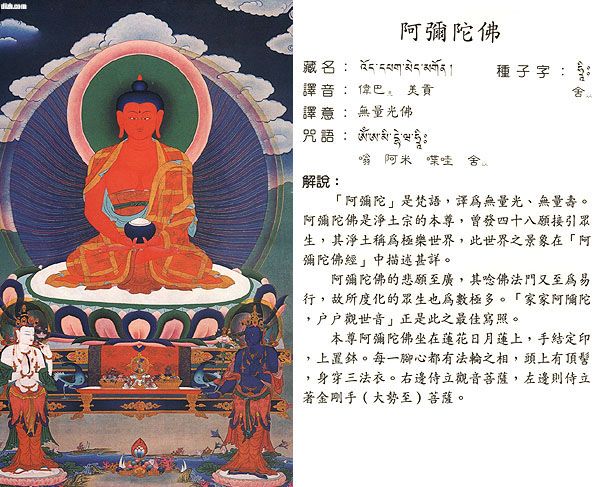 dizh.com
阿彌陀佛
藏名：འོད་དཔག་མེད་མགོན། 種子字：ཧྲཱིཿ
譯音：偉巴ㄍ 美貢 舍ㄧ
譯意：無量光佛
咒語：ༀ་ཨ་མི་དྷེ་ཝ་ཧྲཱིཿ
嗡 阿米 喋哇 舍ㄧ
解說：
「阿彌陀」是梵語，譯爲無量光、無量壽。
阿彌陀佛是淨土宗的本尊，曾發四十八願接引眾
生，其淨土稱爲極樂世界，此世界之景象在「阿
彌陀佛經」中描述甚詳。
阿彌陀佛的悲願至廣，其唸佛法門又至爲易
行，故所度化的眾生也爲數極多。「家家阿彌陀
，户户觀世音」正是此之最佳寫照。
本尊阿彌陀佛坐在蓮花日月蓮上，手結定印
，上置鉢。每一腳心都有法輪之相，頭上有頂髻
，身穿三法衣。右邊侍立觀音菩薩，左邊則侍立
著金剛手（大勢至）菩薩。